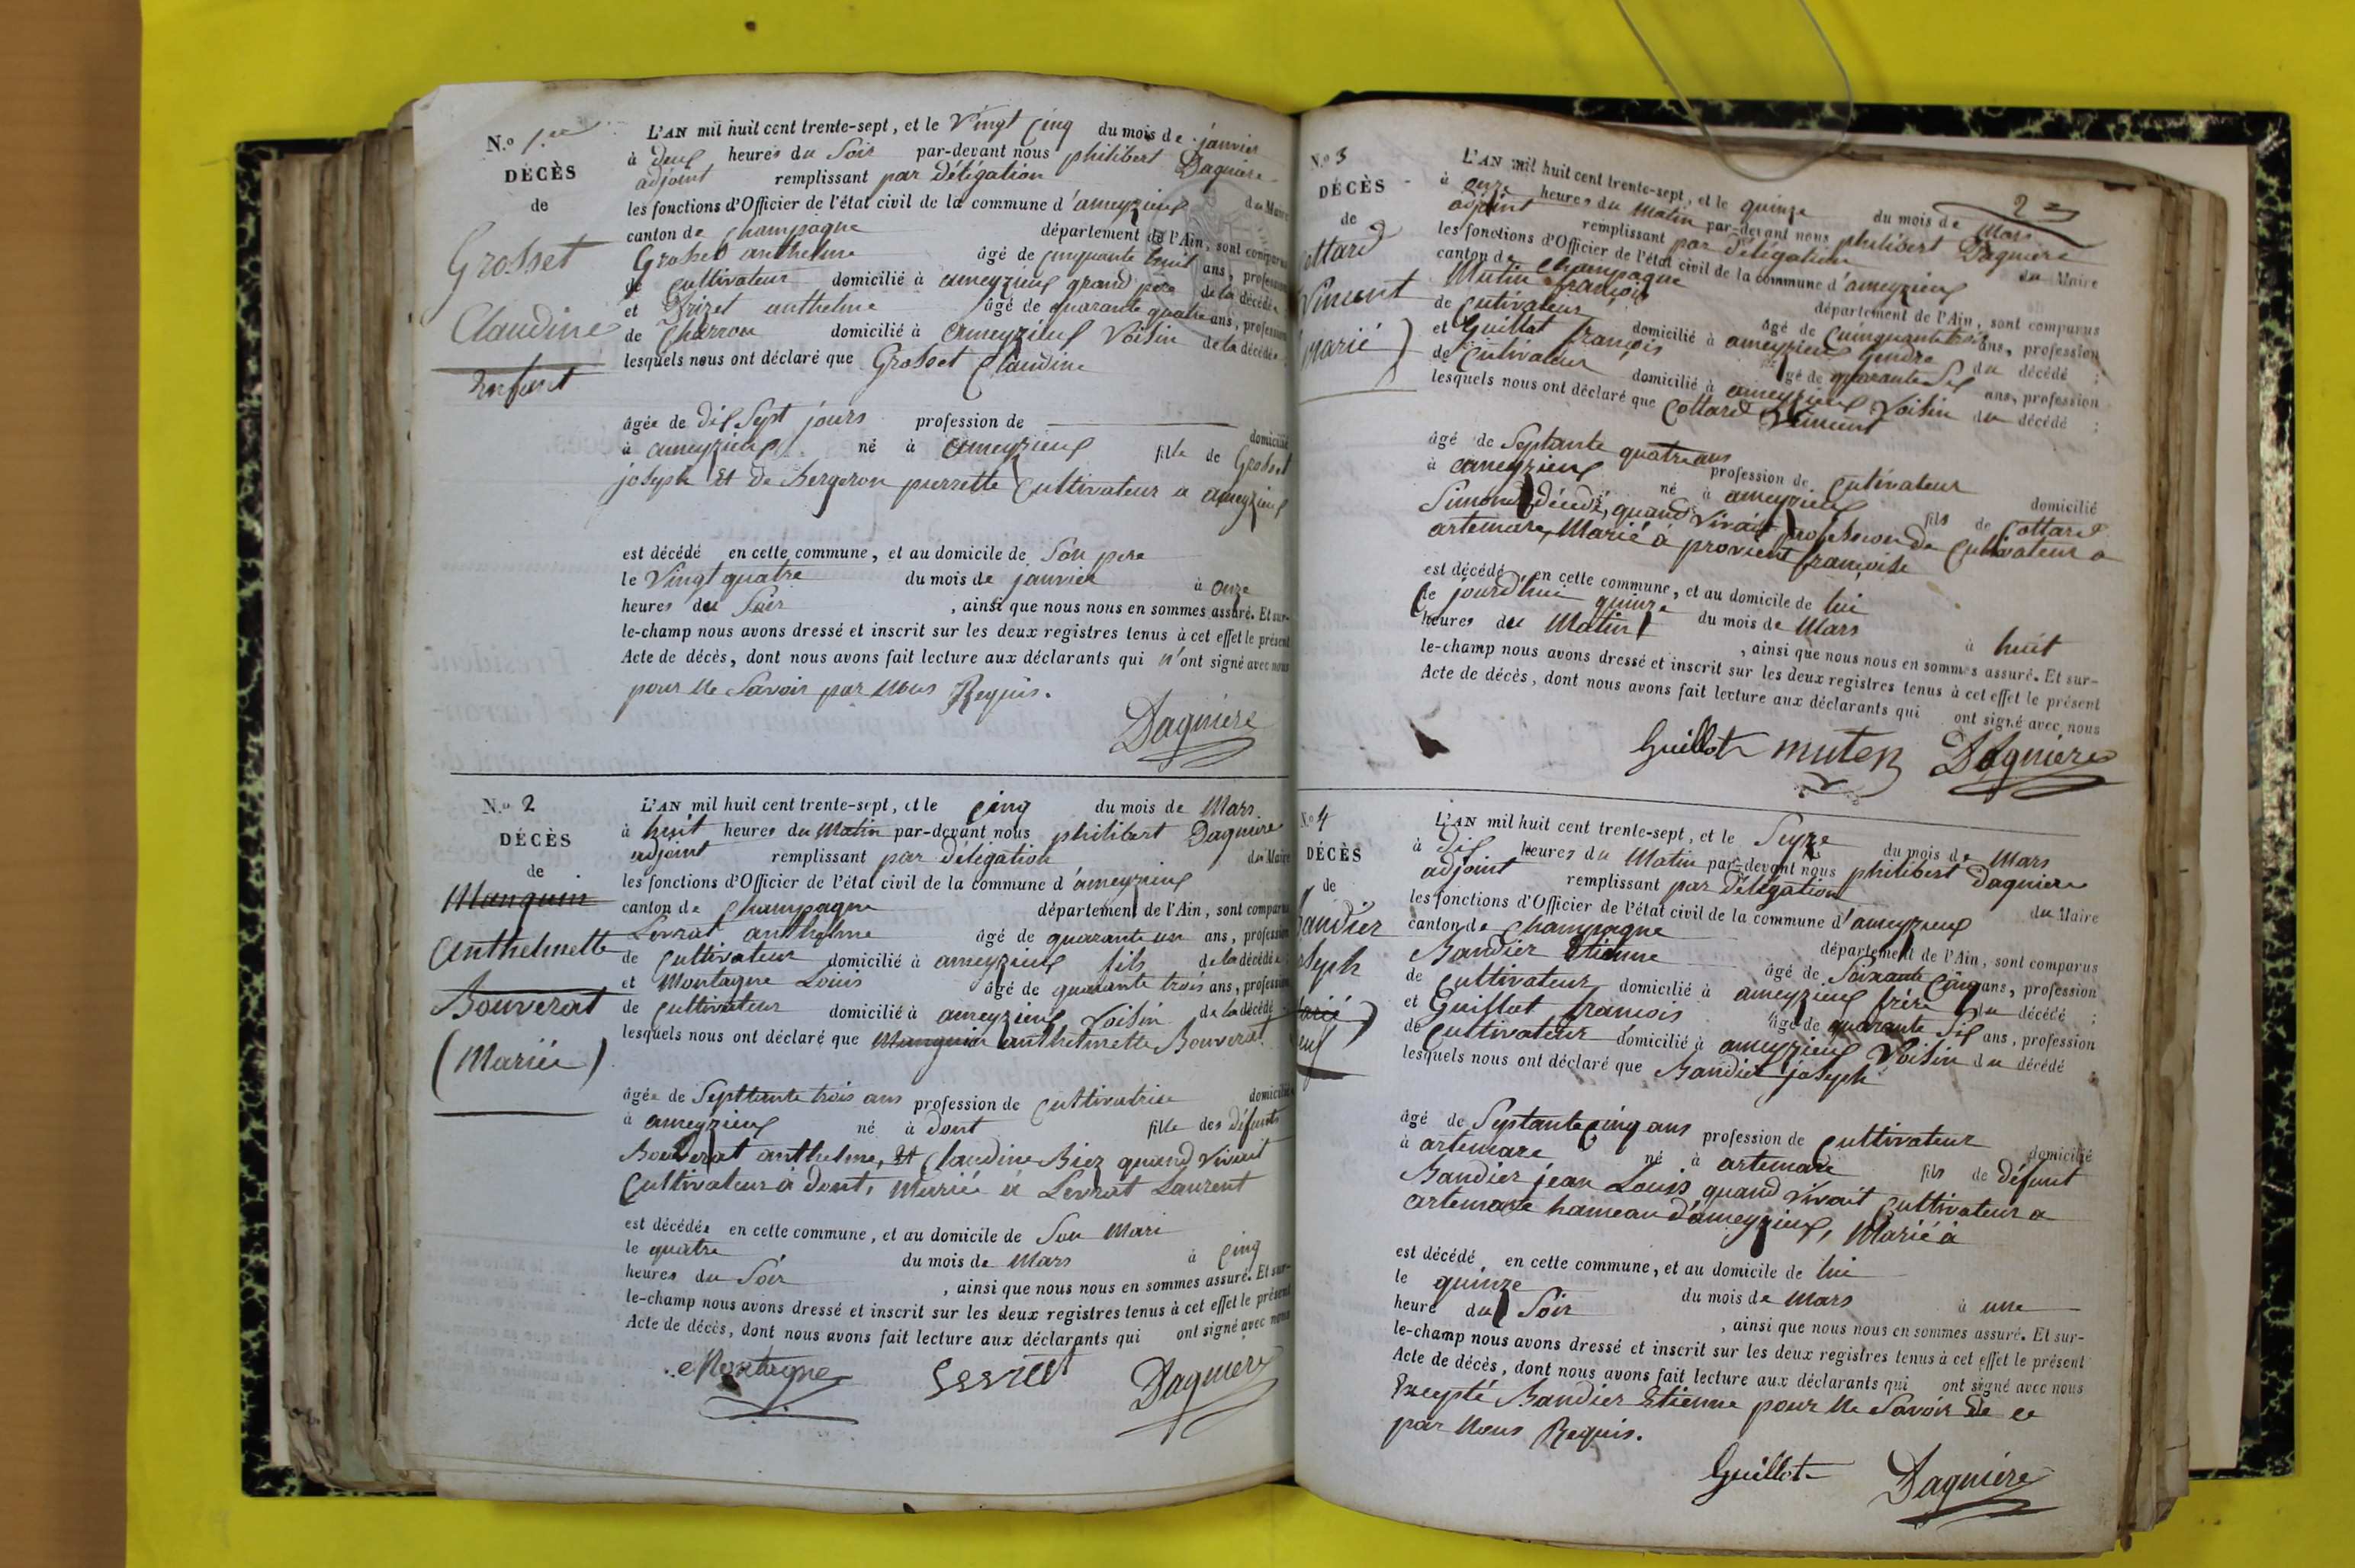 N.o 1.er
DÉCÈS
de
Grosset
Claudine
Enfant
L'AN mil huit cent trente-sept, et le Vingt Cinq du mois de janvier
à deux heures du Soir par-devant nous philibert Daguiere
adjoint remplissant par délégation du Maire
les fonctions d'Officier de l'état civil de la commune d'ameyzieux
canton de Champagne département de l'Ain, sont comparus
Grosset anthelme âgé de cinquante huit ans, profession
de Cultivateur domicilié à ameyzieux grand pere de la décédée
et anthelme âgé de quarante quatre ans, profession
de Charron domicilié à ameyzieux Voisin de la décédée
lesquels nous ont déclaré que Grosset Claudine
âgée de dix Sept jours profession de domicilié
à ameyzieux né à ameyzieux fille de Grosset
joseph Et de Bergeron pierrette Cultivateur a ameyzieux
est décédé en cette commune, et au domicile de Son pere
le Vingt quatre du mois de janvier à onze
heures du Soir, ainsi que nous nous en sommes assuré. Et sur-
le-champ nous avons dressé et inscrit sur les deux registres tenus à cet effet le présent
Acte de décès, dont nous avons fait lecture aux déclarants qui n'ont signé avec nous
pour Ne Savoir par Nous Requis.
Daguiere
N.o 2
DÉCÈS
de
Manquin
Anthelmette
Bouverat
(Mariée)
L'AN mil huit cent trente-sept, et le Cinq du mois de Mars
à huit heures du Matin par-devant nous philibert Daguiere
adjoint remplissant par délégation du Maire
les fonctions d'Officier de l'état civil de la commune d'ameyzieux
canton de Champagne département de l'Ain, sont comparus
Levrat anthelme âgé de quarante un ans, profession
de Cultivateur domicilié à ameyzieux fils de la décédée
et Montagne Louis âgé de quarante trois ans, profession
de Cultivateur domicilié à ameyzieux Voisin de la décédé
lesquels nous ont déclaré que Manquin anthelmette Bouverat
âgée de Septtante trois ans profession de Cultivatrice domicilié
à ameyzieux né à dont fille des défunts
Bouverat anthelme, Et Claudine Biez quand Vivait
Cultivateur à dont, Mariée à Levrat Laurent
est décédée en cette commune, et au domicile de Son Mari
le quatre du mois de Mars à Cinq
heures du Soir, ainsi que nous nous en sommes assuré. Et sur-
le-champ nous avons dressé et inscrit sur les deux registres tenus à cet effet le présent
Acte de décès, dont nous avons fait lecture aux déclarants qui ont signé avec nous
Montagne Daguiere
2
N.o 3
DÉCÈS
de
ottard
Vincent
marié)
L'AN mil huit cent trente-sept, et le quinze du mois de Mars
à onze heures du Matin par-devant nous philibert Daguiere
adjoint remplissant par délégation du Maire
les fonctions d'Officier de l'état civil de la commune d'ameyzieux
canton de Champagne département de l'Ain, sont comparus
Mutin françois âgé de Cinquante trois ans, profession
de Cutivateur domicilié à ameyzieux Gendre du décédé ;
et Guillot françois âgé de quarante Six ans, profession
de Cultivateur domicilié à ameyzieux Voisin du décédé ;
lesquels nous ont déclaré que Cottard Vincent
âgé de Septante quatre ans profession de Cutivateur domicilié
à ameyzieux né à ameyzieux fils de Cottard
Simond décédé, quand Vivait profession de Cultivateur a
artemare, Marié à provient françoise
est décédé en cette commune, et au domicile de lui
Ce jourdhui quinze du mois de Mars à huit
heures du Matin, ainsi que nous nous en sommes assuré. Et sur-
le-champ nous avons dressé et inscrit sur les deux registres tenus à cet effet le présent
Acte de décès, dont nous avons fait lecture aux déclarants qui ont signé avec nous
Guillot muten Daguiere
N.o 4
DÉCÈS
de
andier
oseph
L'AN mil huit cent trente-sept, et le Seyze du mois de Mars
à Dix heures du Matin par-devant nous philibert Daguiere
adjoint remplissant par Délégation du Maire
les fonctions d'Officier de l'état civil de la commune d'ameyzieux
canton de Champagne département de l'Ain, sont comparus
Bandier Etienne âgé de Soixante Cinq ans, profession
de Cultivateur domicilié à ameyzieux frère du décédé ;
et Guillot francois âgé de quarante Six ans, profession
de Cultivateur domicilié à ameyzieux Voisin du décédé ;
lesquels nous ont déclaré que Bandier joseph
âgé de Septante Cinq ans profession de Cultivateur domicilié
à artemare né à artemare fils de défunt
Bandier jean Louis quand Vivait Cultivateur a
artemare hameau d'ameyzieux, Marié à
est décédé en cette commune, et au domicile de lui
le quinze du mois de Mars à une
heure du Soir, ainsi que nous nous en sommes assuré. Et sur-
le-champ nous avons dressé et inscrit sur les deux registres tenus à cet effet le présent
Acte de décès, dont nous avons fait lecture aux déclarants qui ont signé avec nous
Excepté Bandier Etienne pour Ne Savoir De ce
par Nous Requis.
Guillot Daguiere